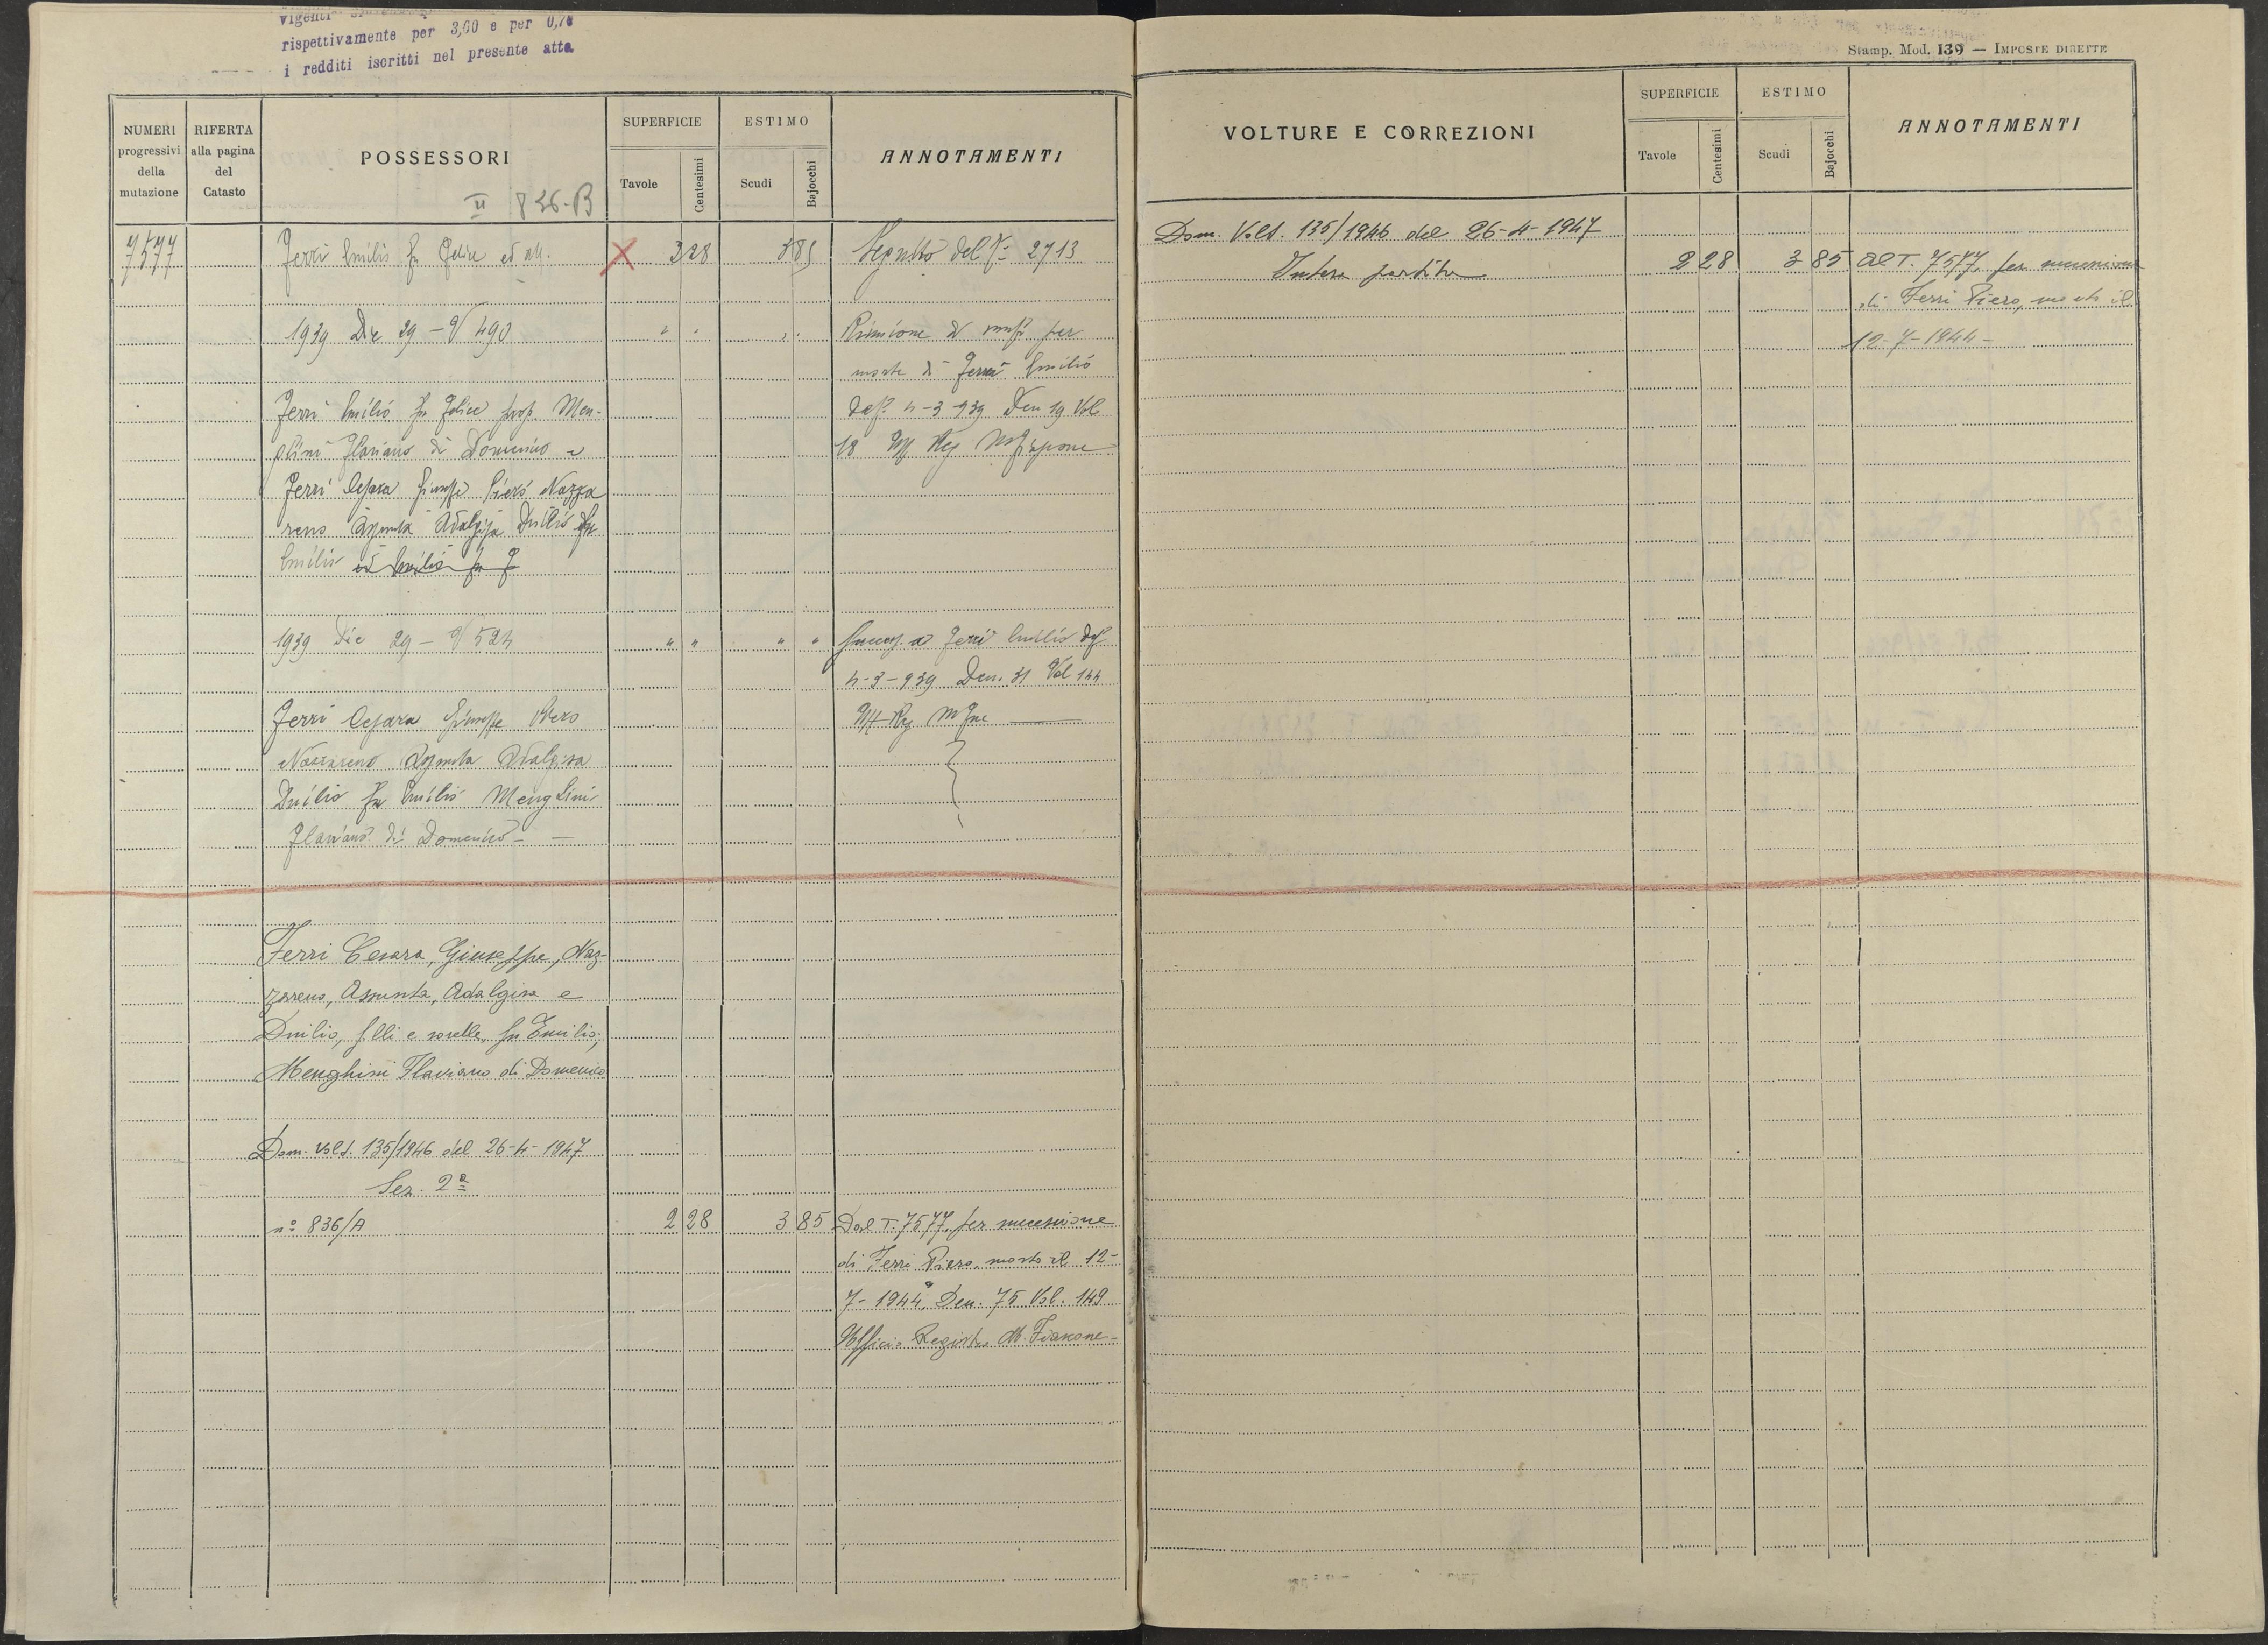 vigenti
rispettivamente per 3,60 e per 0,70
i redditi iscritti nel presente atto
NUMERI progressivi della mutazione
RIFERTA alla pagina del Catasto
POSSESSORI
II 836-B
SUPERFICIE
Tavole
Centesimi
ESTIMO
Scudi
Bajocchi
ANNOTAMENTI
7577 Ferri Emilio fu Felice ed all. X 3 28 3 85 Seguito del N° 2713
1939 Dic 29 - V 490 " " " " Riunione di usuf. per
morte di Ferri Emilio
Ferri Emilio fu Felice prop. Men-
def. 4-3-939 Den 19 Vol
ghini Flaviano di Domenico e
18 Uff Reg M Fiascone
Ferri Cesara Giuseppe Piero Nazza
reno Assunta Adalgisa Duilio fu
Emilio ed Emilio fu F
1939 Dic 29 - V 524 " " " " Success. a Ferri Emilio def
4-3-939 Den. 31 Vol 144
Ferri Cesara Giuseppe Piero
Uff Reg M Fne
Nazzareno Assunta Adalgisa
Duilio fu Emilio Menghini
Flaviano di Domenico -
Ferri Cesara, Giuseppe, Naz-
zareno, Assunta, Adalgisa e
Duilio, f.lli e sorelle, fu Emilio;
Menghini Flaviano di Domenico
Dom. Volt. 135/1946 del 26-4-1947
Sez. 2ª
n° 836/A 2 28 3 85 Dal T. 7577, per successione
di Ferri Piero, morto il 12-
7-1944, Den. 75 Vol. 149
Ufficio Registro M. Fiascone-
Stamp. Mod. 139 — IMPOSTE DIRETTE
VOLTURE E CORREZIONI
SUPERFICIE
Tavole
Centesimi
ESTIMO
Scudi
Bajocchi
ANNOTAMENTI
Dom. Volt. 135/1946 del 26-4-1947
Intera partita 2 28 3 85 Al T. 7577, per successione
di Ferri Piero, morto il
12-7-1944-